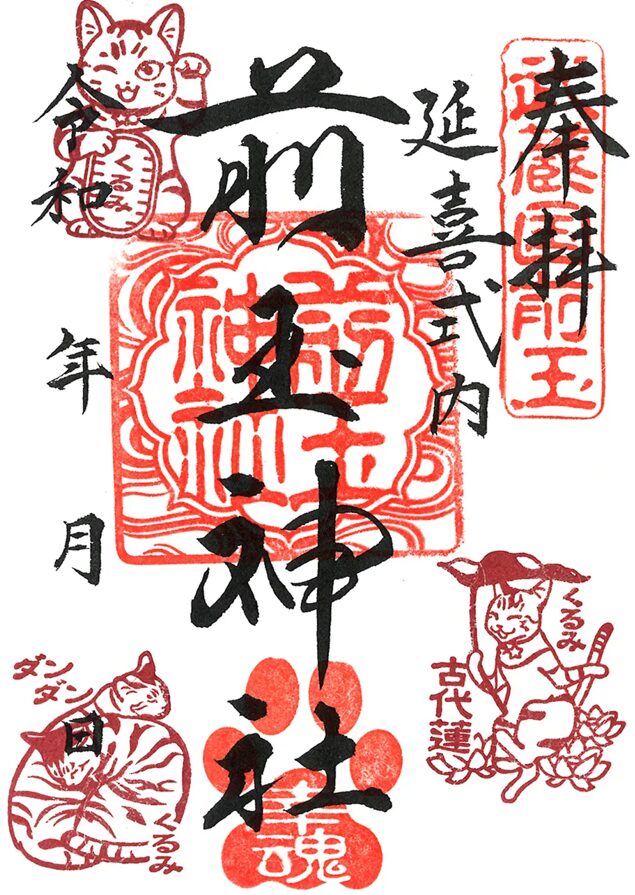 奉拝
武蔵国前玉
延喜式内
前玉神社
前玉
神社
幸魂
令和 年 月 日
くるみ
くるみ
古代蓮
ダン
ダン
くるみ